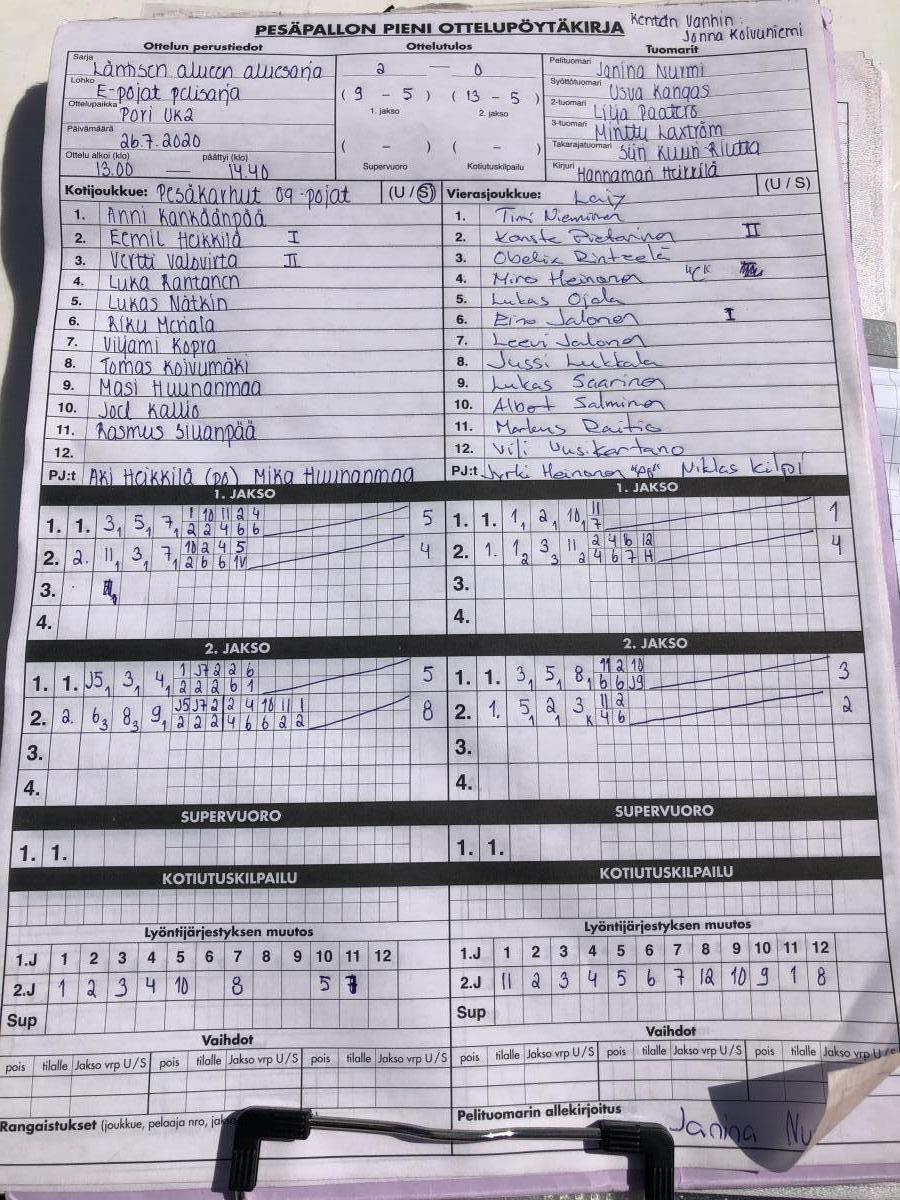 PESÄPALLON PIENI OTTELUPÖYTÄKIRJA
Kentän Vanhin:
Jonna Koivuniemi
Ottelun perustiedot
Ottelutulos
Tuomarit
Sarja Läntisen alueen aluesarja
Lohko E-pojat pelisarja
Ottelupaikka Pori UK2
Päivämäärä 26.7.2020
Ottelu alkoi (klo) päättyi (klo)
13.00 — 14.40
2 — 0
( 9 - 5 ) ( 13 - 5 )
1. jakso 2. jakso
( - ) ( - )
Supervuoro Kotiutuskilpailu
Pelituomari Janina Nurmi
Syöttötuomari Usva Kangas
2-tuomari Lilja Paatero
3-tuomari Minttu Laxtröm
Takarajatuomari Siiri Kuun-Riutta
Kirjuri Hannamari Heikkilä
Kotijoukkue: Pesäkarhut 09-pojat (U / S)
1. Anni Kankäänpää
2. Eemil Heikkilä I
3. Vertti Valovirta II
4. Luka Rantanen
5. Lukas Nätkin
6. Riku Meriala
7. Viljami Kopra
8. Tomas Koivumäki
9. Masi Huunanmaa
10. Joel Kallio
11. Rasmus Siuanpää
12.
PJ:t Aki Heikkilä (PJ) Mika Huunanmaa
Vierasjoukkue: (U / S)
1. Timi Nieminen
2. Konsta Pietarinen II
3. Obelix Rinteelä
4. Miro Heinonen "C"
5. Lukas Ojala
6. Eino Jalonen I
7. Leevi Jalonen
8. Jussi Lukkala
9. Lukas Saarinen
10. Albert Salminen
11. Markus Raitio
12. Vili Uusikartano
PJ:t Jyrki Heinonen Niklas Kilpi
1. JAKSO
1. 1. 3, 5, 7, 1 10 11 2 4 5
2 2 4 6 6
2. 2. 11, 3, 7, 10 2 4 5 4
2 6 6 1V
3.
4.
1. JAKSO
1. 1. 1, 2, 10, 11 1
7
2. 1. 1 2 3 3 11 2 2 4 6 12 4
4 6 7 H
3.
4.
2. JAKSO
1. 1. J5, 3, 4, 1 J7 2 2 6 5
2 2 2 6 1
2. 2. 6 3 8 3 9, J5 J7 2 2 4 10 11 1 8
2 2 2 4 6 6 2 2
3.
4.
2. JAKSO
1. 1. 3, 5, 8, 11 2 10 3
6 6 J9
2. 1. 5, 2, 3 K 11 2 2
4 6
3.
4.
SUPERVUORO
1. 1.
SUPERVUORO
1. 1.
KOTIUTUSKILPAILU
KOTIUTUSKILPAILU
Lyöntijärjestyksen muutos
1.J 1 2 3 4 5 6 7 8 9 10 11 12
2.J 1 2 3 4 10 8 5
Sup
Lyöntijärjestyksen muutos
1.J 1 2 3 4 5 6 7 8 9 10 11 12
2.J 11 2 3 4 5 6 7 12 10 9 1 8
Sup
Vaihdot
pois tilalle Jakso vrp U/S pois tilalle Jakso vrp U/S pois tilalle Jakso vrp U/S
Vaihdot
pois tilalle Jakso vrp U/S pois tilalle Jakso vrp U/S pois tilalle Jakso vrp U/S
Rangaistukset (joukkue, pelaaja nro, jakso
Pelituomarin allekirjoitus
Janina Nu